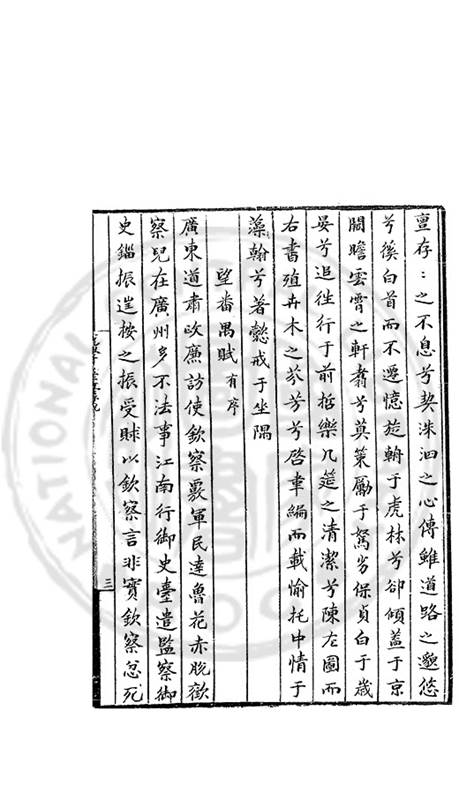 亶存：之不息兮契洙泗之心傳雖道路之邈悠
兮徯白首而不遷憶旌斾于虎林兮卻傾蓋于京
闕瞻雲霄之軒翥兮莫策勵于駑劣保貞白于歲
晏兮追往行于前哲樂几筵之清潔兮陳左圖而
右書殖卉木之芬芳兮啓韋編而載愉托中情于
藻翰兮著懿戒于坐隅
望番禺賦有序
廣東道肅政廉訪使欽察覈軍民達魯花赤脫歡
察兒在廣州多不法事江南行御史臺遣監察御
史鎦振逞按之振受賕以欽察言非實欽察忿死
三